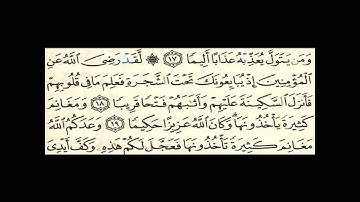 وَمَن يَتَوَلَّ يُعَذِّبْهُ عَذَابًا أَلِيمًا ١٧ ۞ لَّقَدْ رَضِىَ ٱللَّهُ عَنِ
ٱلْمُؤْمِنِينَ إِذْ يُبَايِعُونَكَ تَحْتَ ٱلشَّجَرَةِ فَعَلِمَ مَا فِى قُلُوبِهِمْ
فَأَنزَلَ ٱلسَّكِينَةَ عَلَيْهِمْ وَأَثَـٰبَهُمْ فَتْحًا قَرِيبًا ١٨ وَمَغَانِمَ
كَثِيرَةً يَأْخُذُونَهَا ۗ وَكَانَ ٱللَّهُ عَزِيزًا حَكِيمًا ١٩ وَعَدَكُمُ ٱللَّهُ
مَغَانِمَ كَثِيرَةً تَأْخُذُونَهَا فَعَجَّلَ لَكُمْ هَـٰذِهِۦ وَكَفَّ أَيْدِىَ